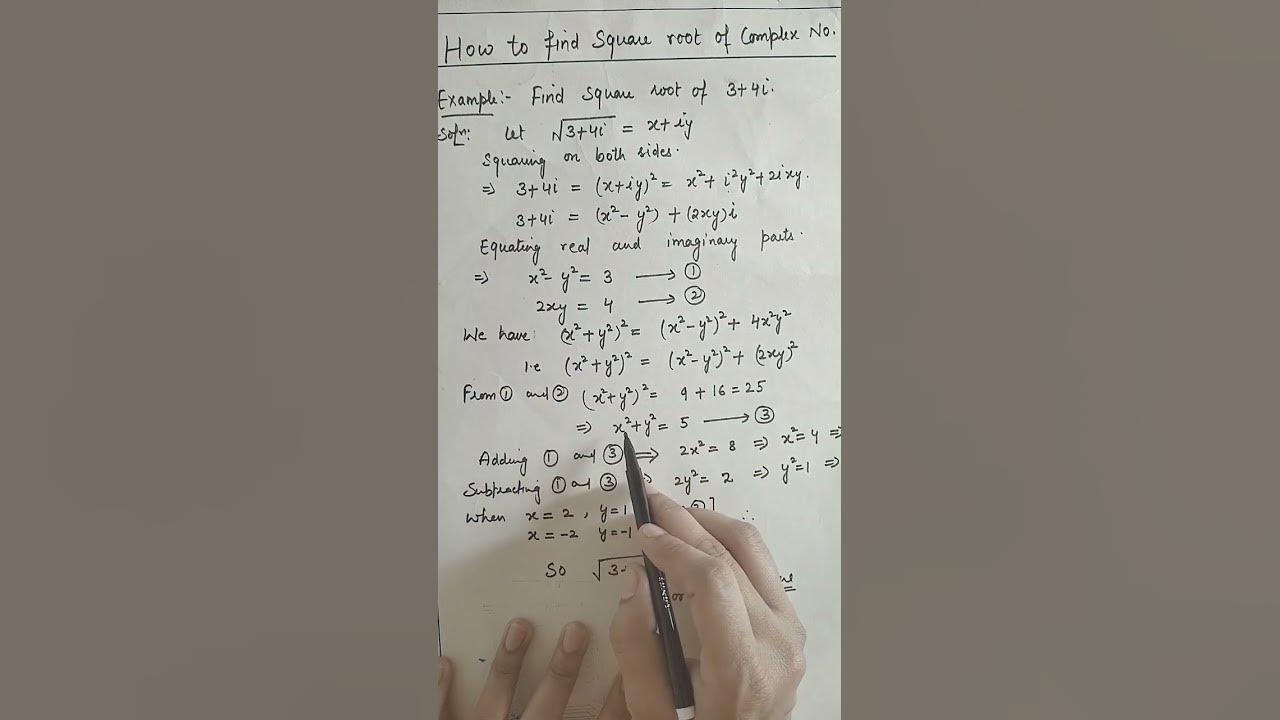 How to find Square root of Complex No.
Example:- Find Square root of 3+4i.
Soln: Let √3+4i = x+iy
Squaring on both sides.
⇒ 3+4i = (x+iy)² = x²+ i²y²+2ixy.
3+4i = (x²-y²) + (2xy)i
Equating real and imaginary parts.
⇒ x²-y²= 3 → ①
2xy = 4 → ②
We have: (x²+y²)²= (x²-y²)²+ 4x²y²
i.e (x²+y²)² = (x²-y²)²+ (2xy)²
From ① and ② (x²+y²)²= 9+16=25
⇒ x²+y²= 5 → ③
Adding ① and ③ ⇒ 2x²= 8 ⇒ x²=4 ⇒
Subtracting ① and ③ ⇒ 2y²= 2 ⇒ y²=1 ⇒
When x=2, y=1 ②] ∴
x=-2 y=-1
So √3+
or